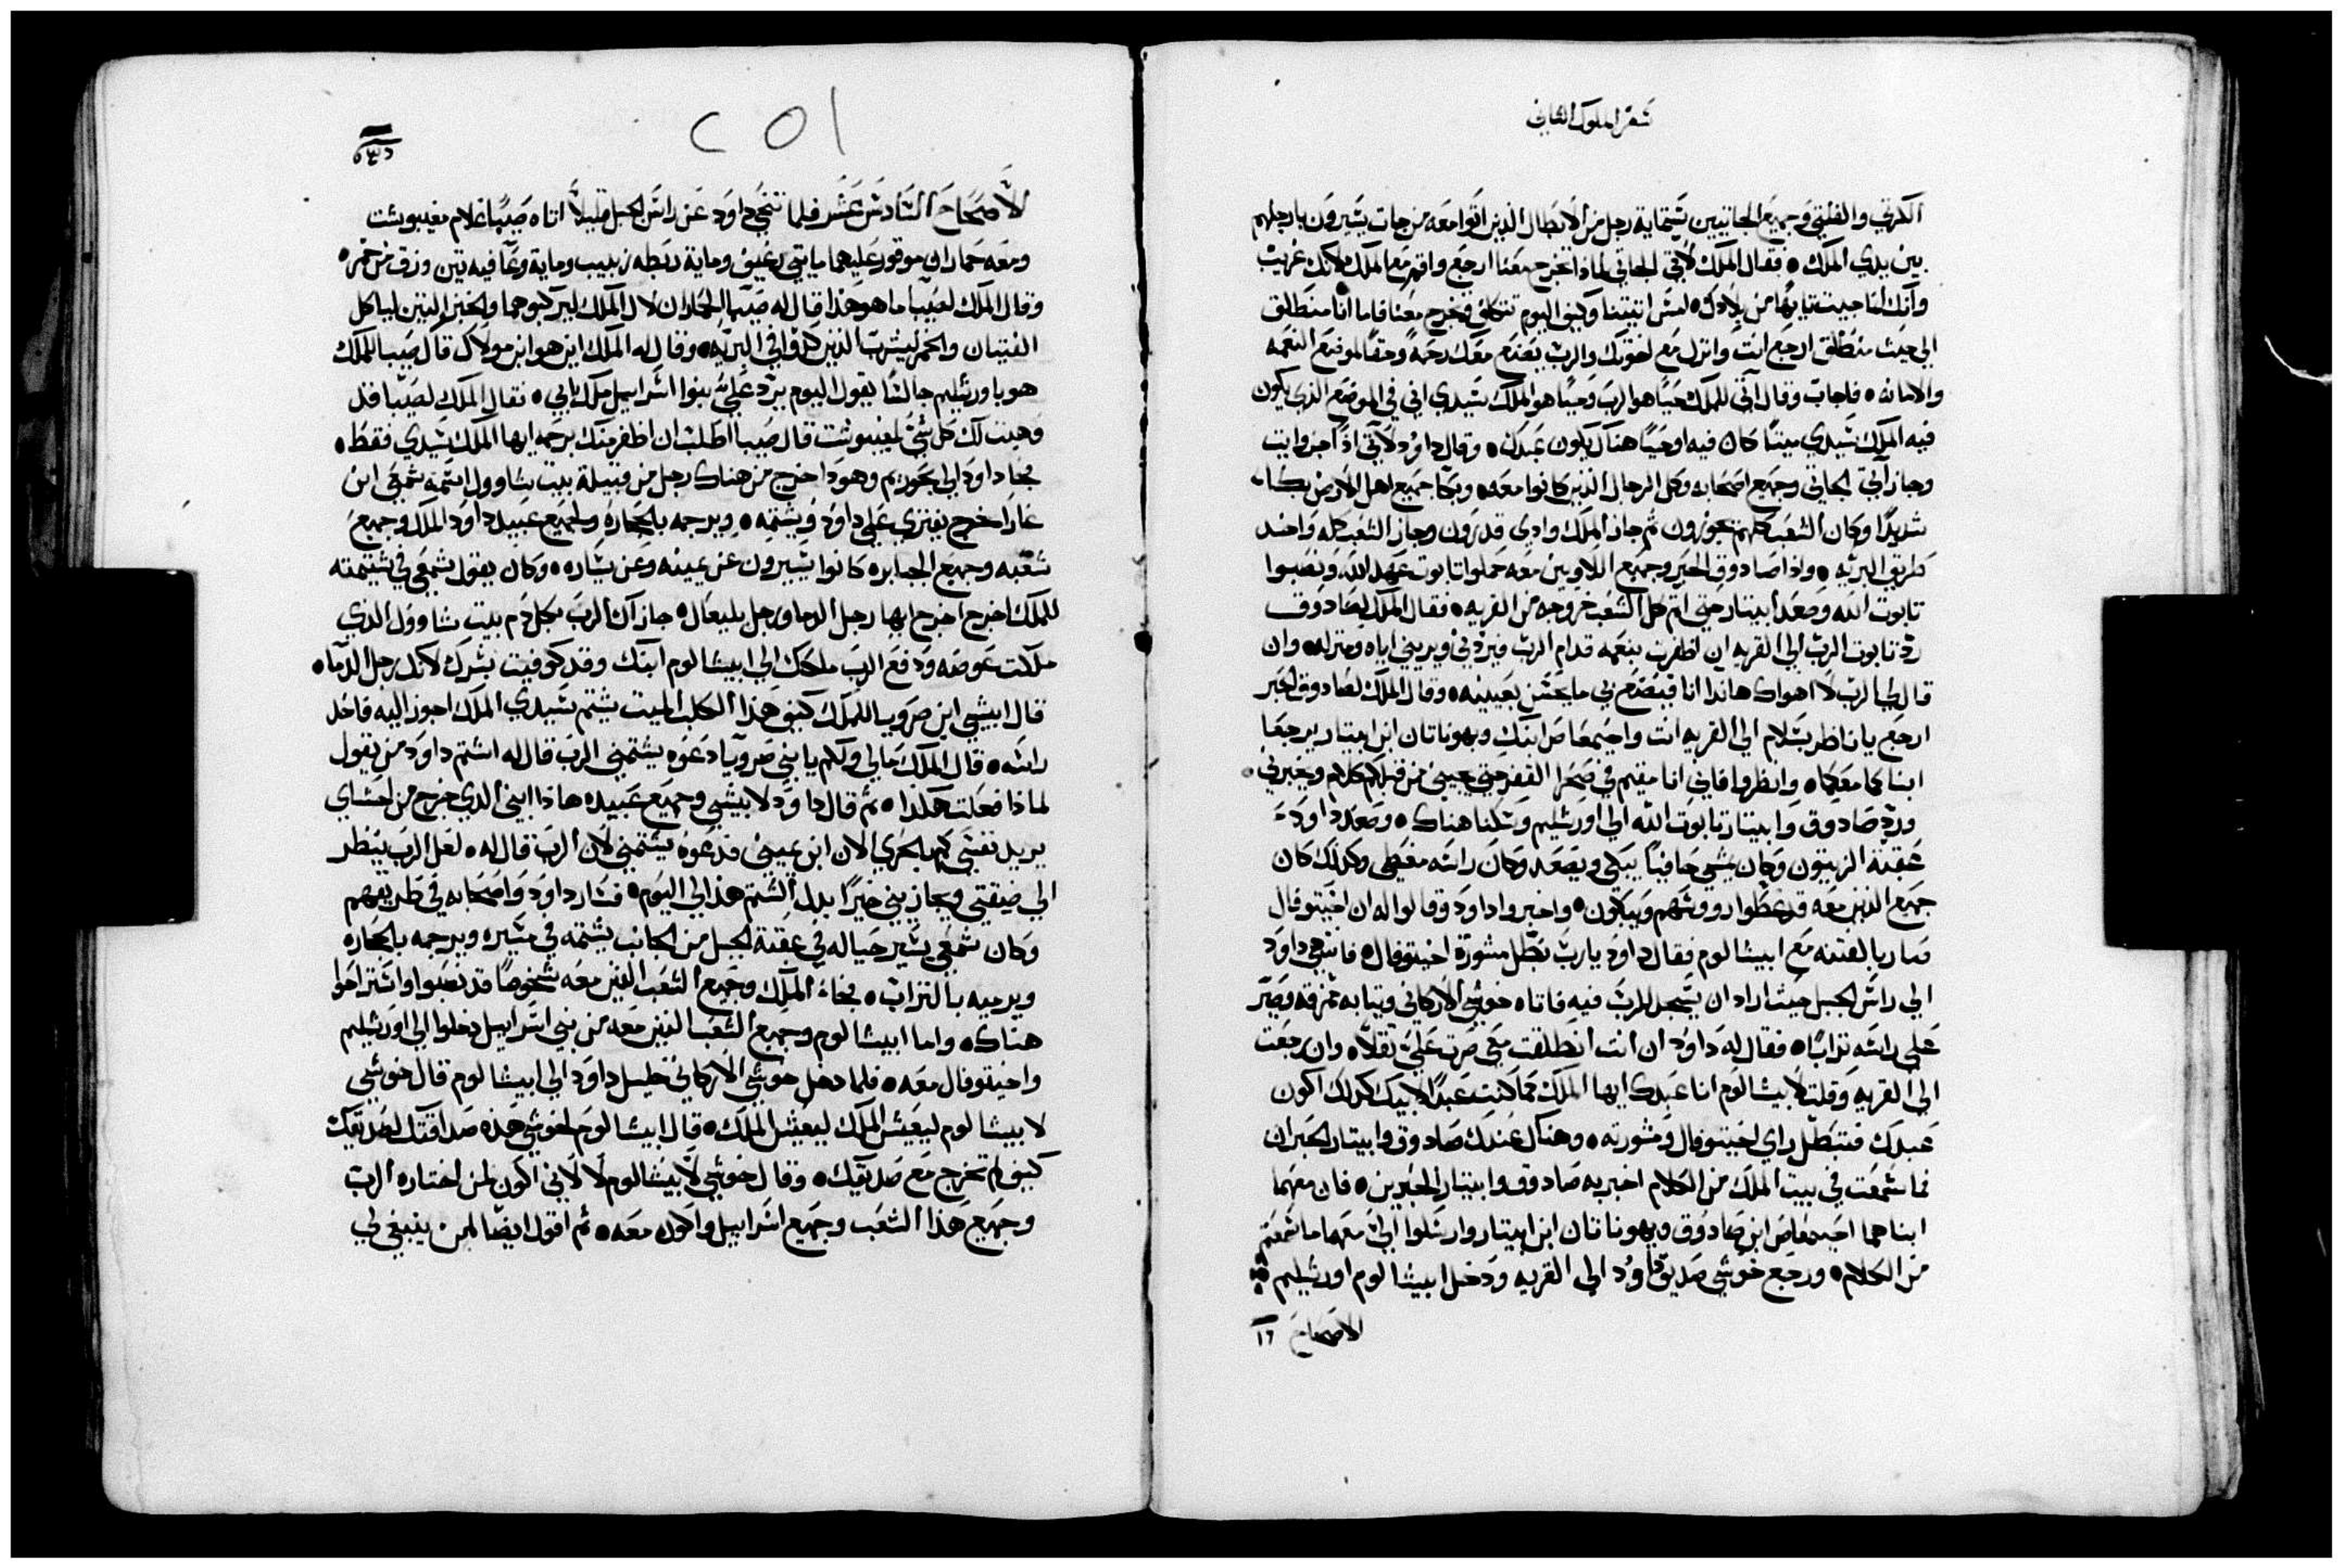 سفر الملوك الثاني
الكرتي والفلتي وجميع الجاتيين ستماية رجل من الابطال الذين اتوا معه من جات يسيرون بارجلهم
بين يدي الملك ٥ فقال الملك لاتي الجاتي لماذا تخرج معنا ارجع واقم مع الملك لانك غريب
وانك انما جيت تايها من بلادك ٥ امس اتيتنا وكيف اليوم تتكلف وتخرج معنا فاما انا منطلق
الي حيث منطلق ارجع انت وانزل مع اخوتك والرب يصنع معك رحمة وحقا لموضع النعمه
والامانه ٥ فاجاب وقال اتي للملك حيا هو الرب وحيا هو الملك سيدي اني في الموضع الذي يكون
فيه الملك سيدي ميتا كان فيه او حيا هناك يكون عبدك ٥ وقال داود لاتي اذا اجز وايت
وجاز اتي الجاتي وجميع اصحابه وكل الرجال الذين كانوا معه ٥ وبكا جميع اهل الارض بكاء
شديدا وكان الشعب كلهم يجوزون ثم جاز الملك وادي قدرون وجاز الشعب كله واخذ
طريق البريه ٥ واذا صادوق الحبر وجميع اللاويين معه حملوا تابوت عهد الله ونصبوا
تابوت الله وصعد ابيتار حتي اتم كل الشعب خروجه من القريه ٥ فقال الملك لصادوق
رد تابوت الرب الي القريه ان اظفرت بنعمه قدام الرب فيردني ويريني اياه ومنزله ٥ وان
قال لي الرب لا اهواك هاندا انا فيصنع بي ما يحسن بعينيه ٥ وقال الملك لصادوق الحبر
ارجع يا ناظر بسلام الي القريه انت واخيمعاص ابنك ويهوناتان ابن ابيتار يرجعا
ابناكما معكما ٥ وانظروا فاني انا مقيم في صحرا القفر حتي يجيني من قبلكم كلام ويخبرني ٥
ورد صادوق وابيتار تابوت الله الي اورشليم وسكنا هناك ٥ وصعد داود
عقبة الزيتون وكان يمشي حافيا يبكي ويصعد وكان راسه مغطي وكذلك كان
جميع الذين معه قد غطوا رووسهم ويبكون ٥ واخبروا داود وقالوا له ان اخيتوفال
صار بالفتنه مع ابيشالوم فقال داود يارب بطل مشورة اخيتوفال ٥ فانتهي داود
الي راس الجبل حيث اراد ان يسجد للرب فيه فاتاه خوشي الاركاني وثيابه ممزقه وصير
علي راسه ترابا ٥ فقال له داود ان انت انطلقت معي صرت علي ثقلا ٥ وان رجعت
الي القريه وقلت لابيشالوم انا عبدك ايها الملك كما كنت عبدا لابيك كذلك اكون
عبدك فتبطل راي اخيتوفال ومشورته ٥ وهناك عندك صادوق وابيتار الحبران
فما سمعت في بيت الملك من الكلام اخبر به صادوق وابيتار الحبرين ٥ فان معهما
ابناهما اخيمعاص ابن صادوق ويهوناتان ابن ابيتار وارسلوا الي معهما ما سمعتم
من الكلام ٥ ورجع خوشي صديق داود الي القريه ودخل ابيشالوم اورشليم
الاصحاح ١٦
٢٥١
الاصحاح السادس عشر فلما تنحي داود عن راس الجبل قليلا اتاه صيبا غلام مفيبوشت
ومعه حماران موقور عليهما مايتي رغيف وماية ربطه زبيب وماية وعا فيه تين وزق من خمر ٥
وقال الملك لصيبا ما هو هذا قال له صيبا الحماران لال الملك ليركبوهما والخبز التين لياكل
الفتيان والخمر ليشرب الذين كلوا في البريه ٥ وقال له الملك اين هو ابن مولاك قال صيبا للملك
هو باورشليم جالسا يقول اليوم يرد علي بنوا اسراييل ملك ابي ٥ فقال الملك لصيبا قد
وهبت لك كل شي لمفيبوشت قال صيبا اطلب ان اظفر منك برحمه ايها الملك سيدي فقط ٥
فجا داود الي بحوريم وهوذا خرج من هناك رجل من قبيلة بيت شاوول اسمه شمعي ابن
غارا خرج يفتري علي داود ويشتمه ٥ ويرجمه بالحجاره ولجميع عبيد داود الملك وجميع
شعبه وجميع الجبابره كانوا يسيرون عن يمينه وعن يساره ٥ وكان يقول شمعي في شتيمته
للملك اخرج اخرج ايها رجل الدما ورجل بليعال ٥ جازاك الرب بكل دم بيت شاوول الذي
ملكت عوضه ودفع الرب ملكك الي ابيشالوم ابنك وقد كوفيت بشرك لانك رجل الدما ٥
قال ابيشي ابن صرويا للملك كيف هذا الكلب الميت يشتم سيدي الملك اجوز اليه فاخد
راسه ٥ قال الملك مالي ولكم يا بني صرويا دعوه يشتمني الرب قال له اشتم داود من يقول
لماذا فعلت هكذا ٥ ثم قال داود لابيشي وجميع عبيده هاذا ابني الذي خرج من احشاي
يريد نفسي كم بالحري الان ابن يميني فدعوه يشتمني لان الرب قال له ٥ لعل الرب ينظر
الي ضيقتي ويجازيني خيرا بدل الشتم هذا لي اليوم ٥ فسار داود واصحابه في طريقهم
وكان شمعي يسير حياله في عقبة الجبل من الجانب يشتمه في مسيره ويرجمه بالحجاره
ويرميه بالتراب ٥ فجاء الملك وجميع الشعب الذين معه شخوصا قد تعبوا واستراحوا
هناك ٥ واما ابيشالوم وجميع الشعب الذين معه من بني اسراييل دخلوا الي اورشليم
واخيتوفال معه ٥ فلما دخل خوشي الاركاني خليل داود الي ابيشالوم قال خوشي
لابيشالوم ليعيش الملك ليعيش الملك ٥ قال ابيشالوم لخوشي هذه صداقتك لصديقك
كيف لم تخرج مع صديقك ٥ وقال خوشي لابيشالوم لا لاني اكون لمن اختاره الرب
وجميع هذا الشعب وجميع اسراييل واكون معه ٥ ثم اقول ايضا لمن ينبغي لي